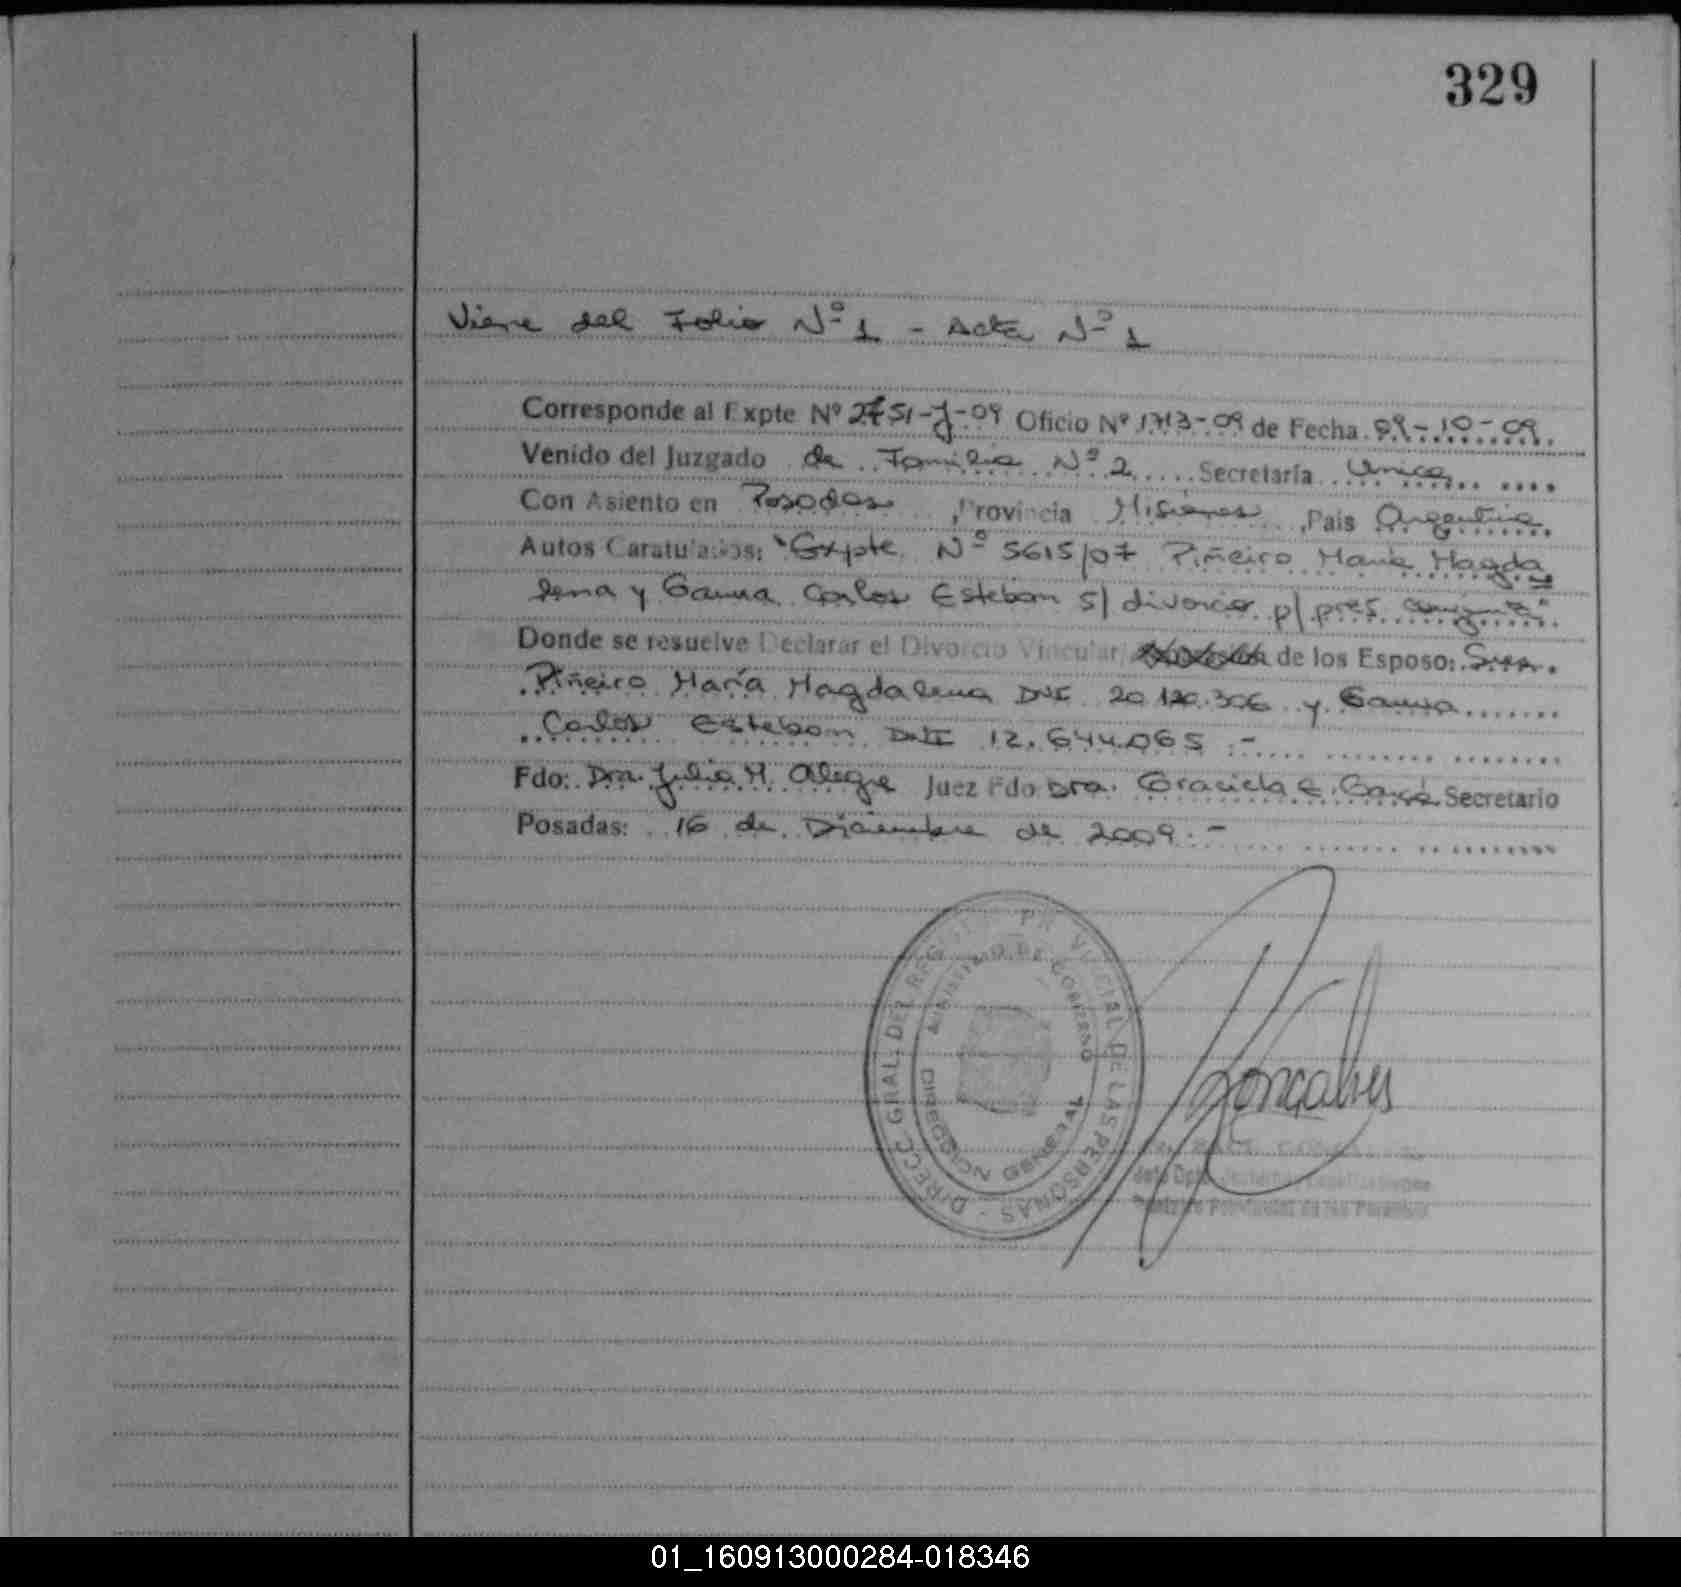 329
Viene del Folio Nº 1 - Acta Nº 1
Corresponde al Expte Nº 2751-J-09 Oficio Nº 1713-09 de Fecha 09-10-09
Venido del Juzgado de Familia Nº 2 Secretaría Unica
Con Asiento en Posadas, Provincia Misiones, País Argentina
Autos Caratulados: "Expte Nº 5615/07 Piñeiro María Magda
lena y Gauna Carlos Esteban s/ divorcio p/ pres. conjunta"
Donde se resuelve Declarar el Divorcio Vincular/ de los Esposo: Sres.
Piñeiro María Magdalena DNI 20.120.306 y Gauna
Carlos Esteban DNI 12.644.065.-
Fdo: Dra. Julia M. Alegre Juez Fdo Dra. Graciela E. Secretario
Posadas: 16 de Diciembre de 2009.-
DIRECC. GRAL. DEL REG. PROVINCIAL DE LAS PERSONAS -
MINISTERIO DE GOBIERNO
DIRECCION GENERAL
Gonçalves
Dpto.
Registro Provincial de las Personas
01_160913000284-018346